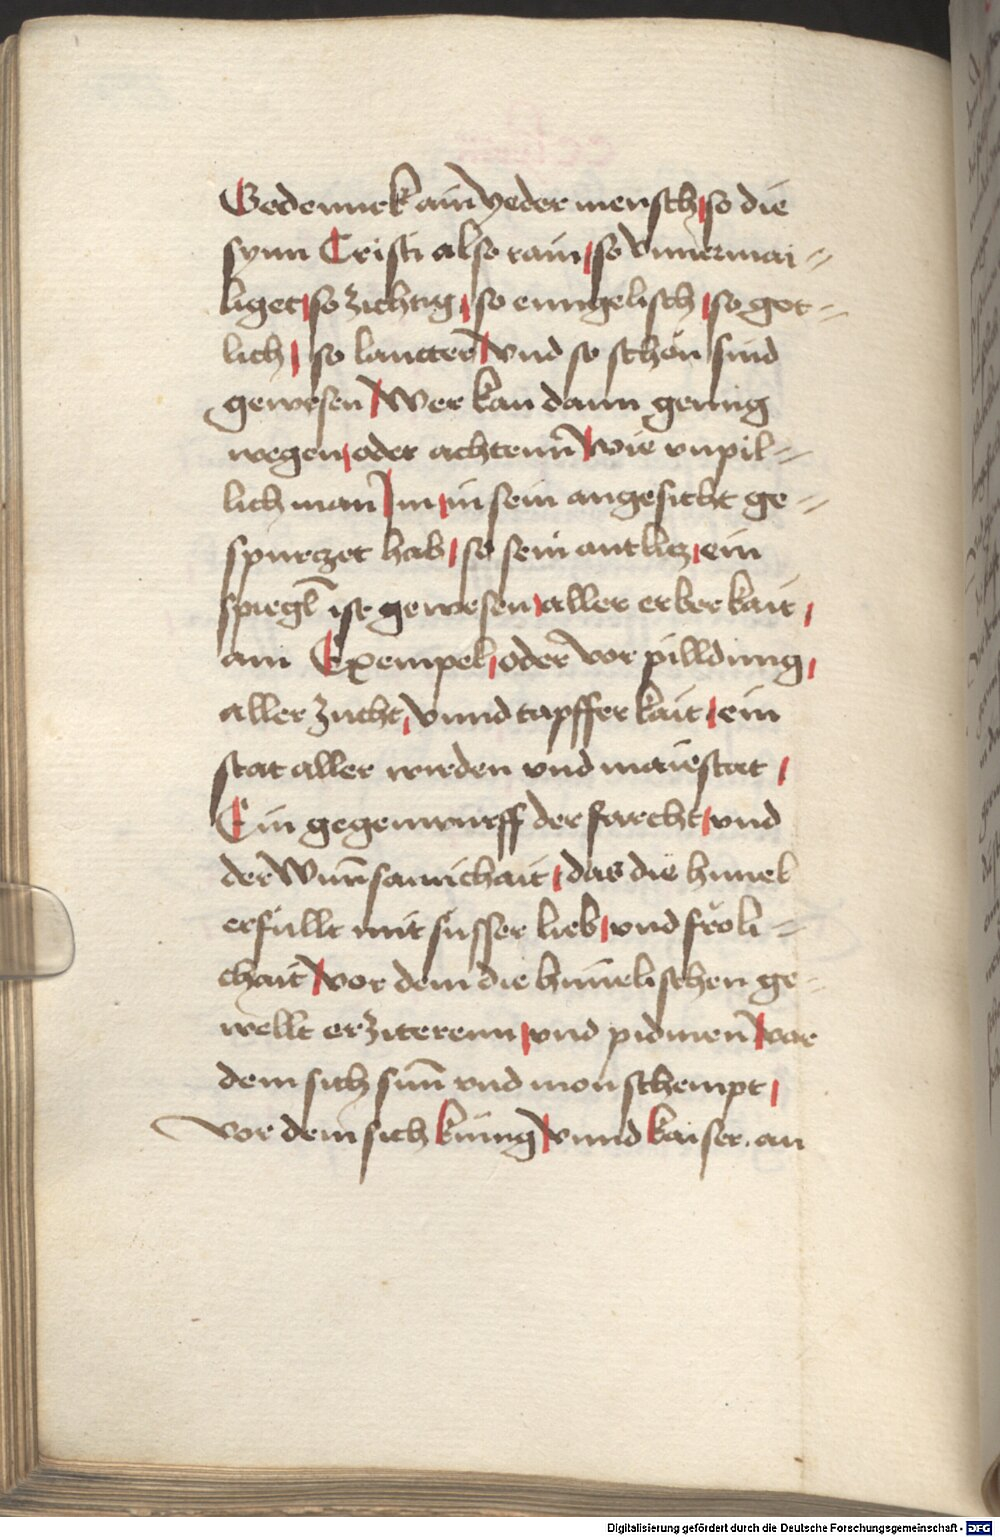 Gedennck ain yeder mensch / so die
synn Cristi also rain / so vnuermai =
liget / so zichtig / so enngelisch / so got =
lich / so lautter / vnd so schön sind
gewesen / Wer kan dann genug
wegen / oder achtenn / wie vnpil =
lich man Im / in sein angesicht ge =
spürczet hab / so sein antlicz / ein
spiegl ist gewesen / aller erberkait /
ain Exempel / oder vor pilldung /
aller zucht / vnnd tapfferkait / ein
stat aller wirden vnd maiestat /
Ein gegenwurff der forcht / vnd
der Wunsamichait / das die himel
erfüllt mit süsser lieb / vnd fröli =
chait / vor dem die himelischen ge =
wellt erziterenn / vnd pidmen / vor
dem sich sunn vnd mon schempt /
vor dem sich künig / vnnd kaiser. an
Digitalisierung gefördert durch die Deutsche Forschungsgemeinschaft - DFG